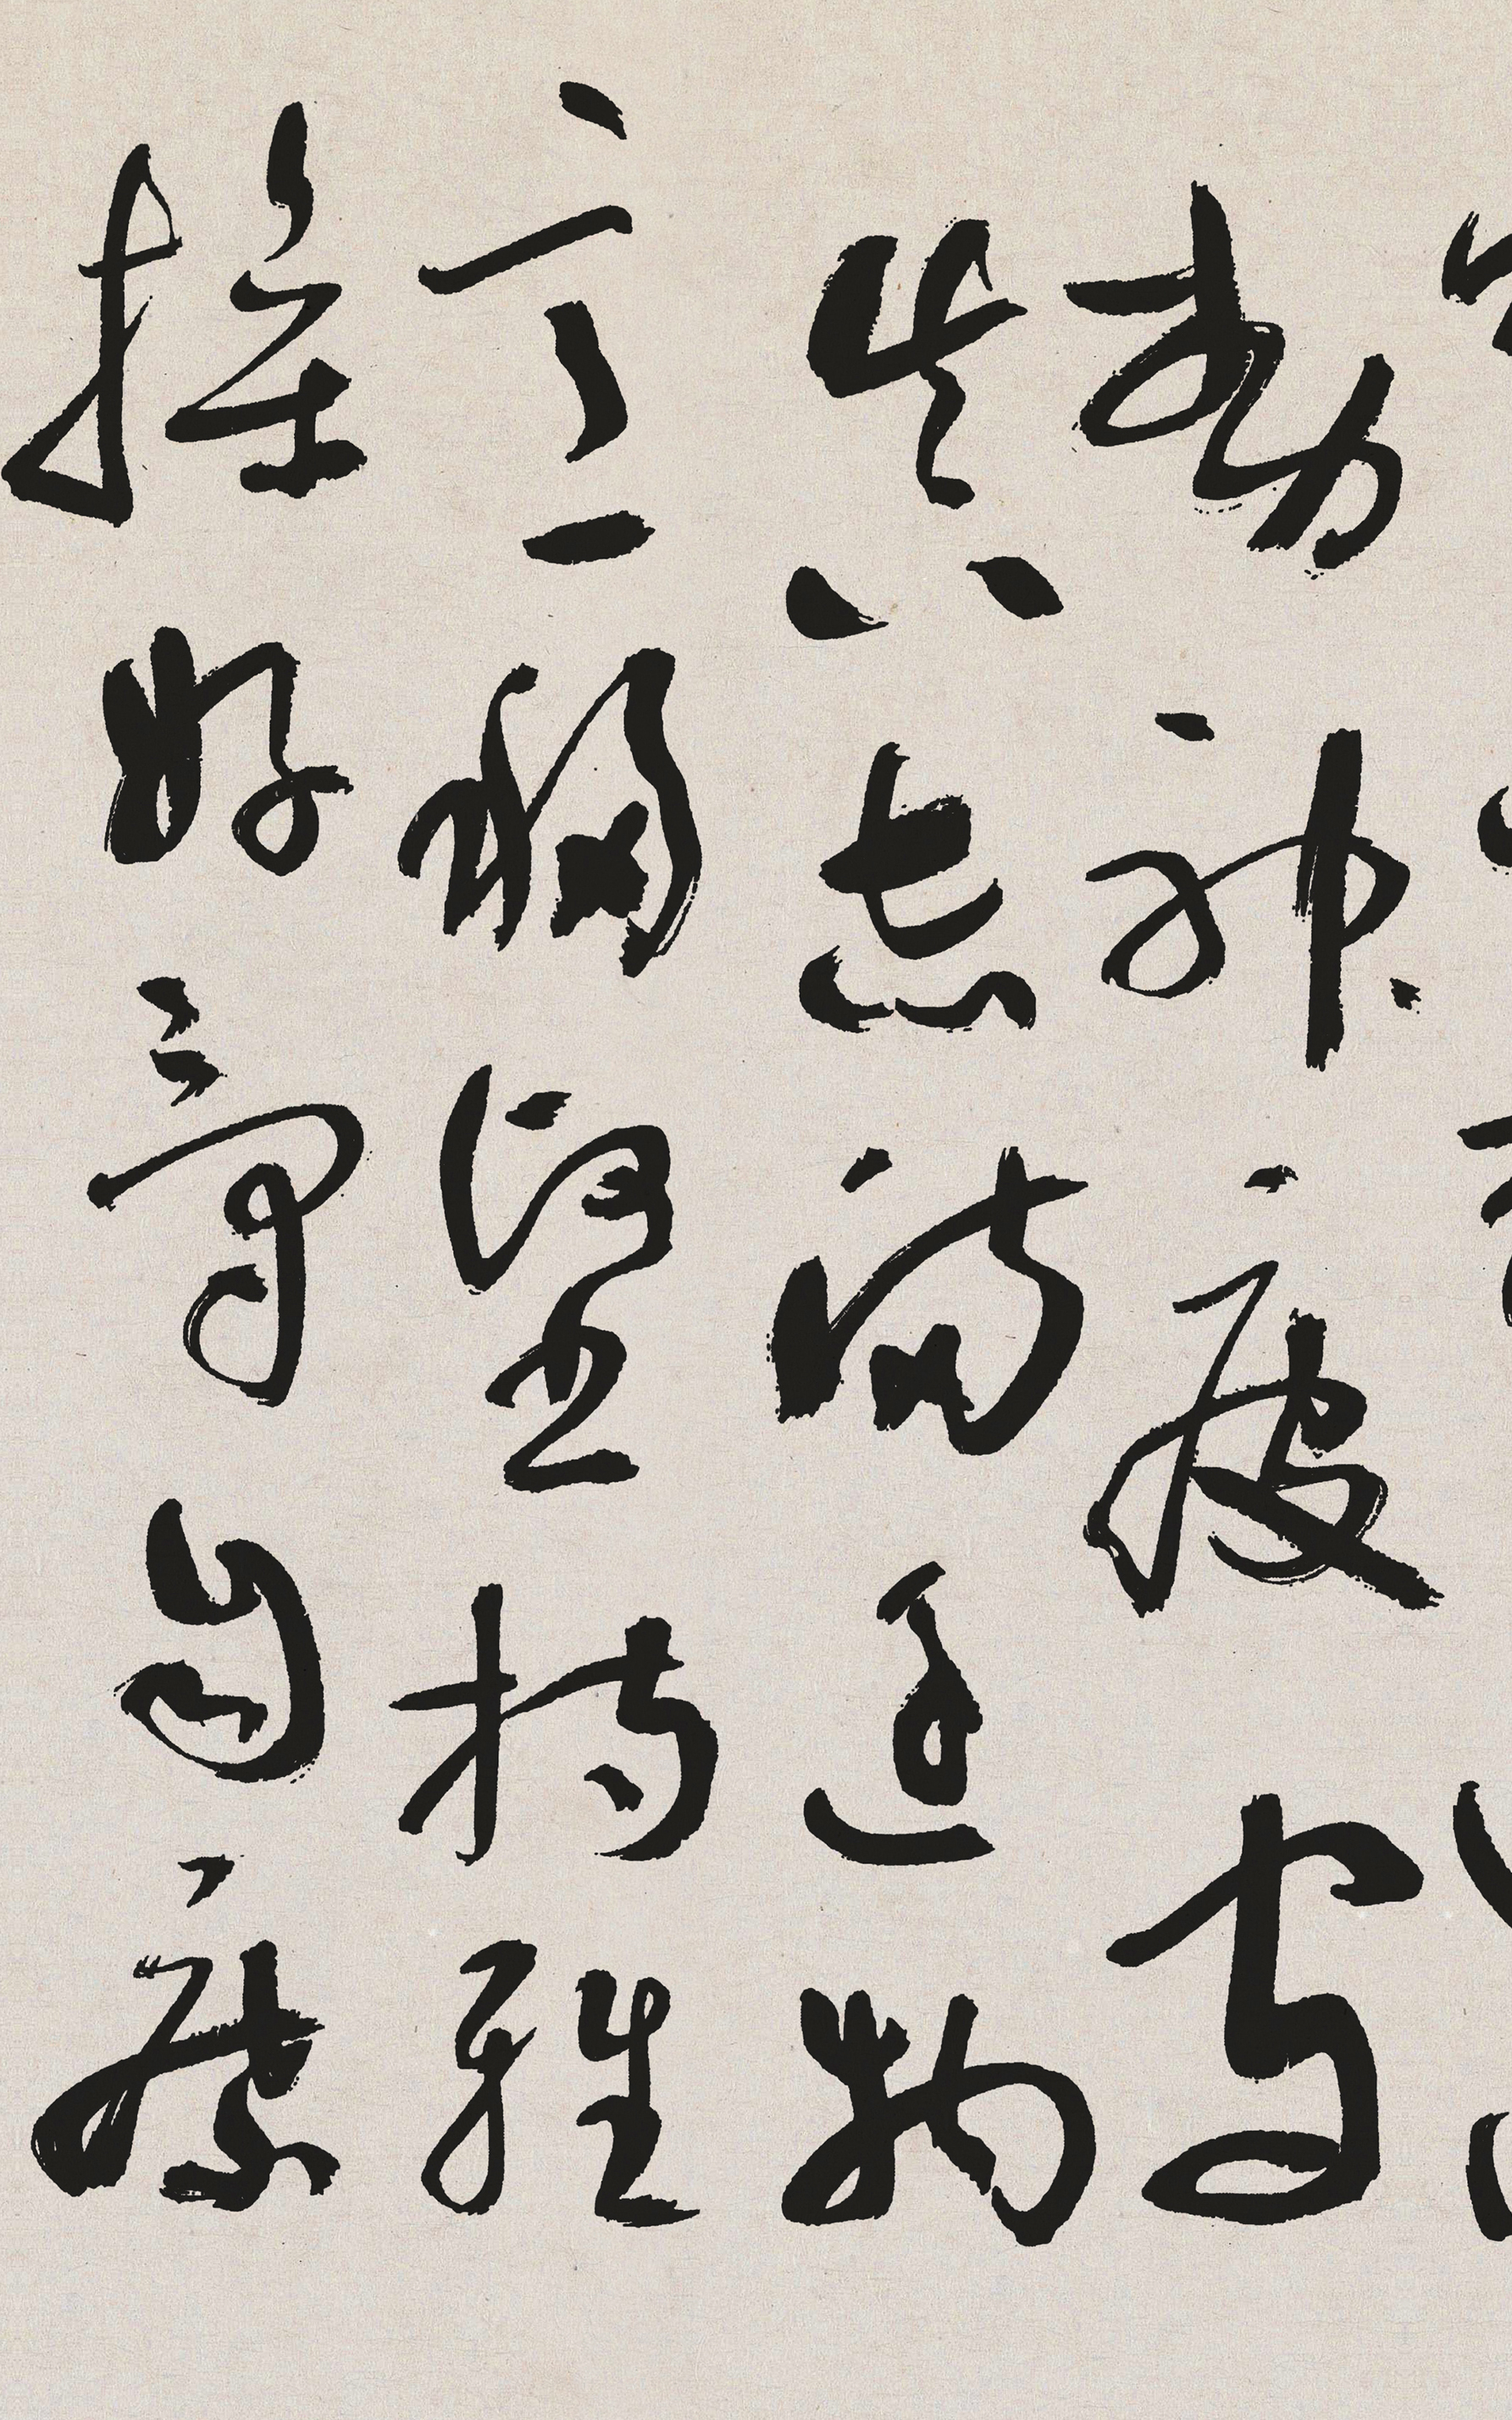 動神疲守
真志滿逐物
意移堅持雅
操好爵自縻